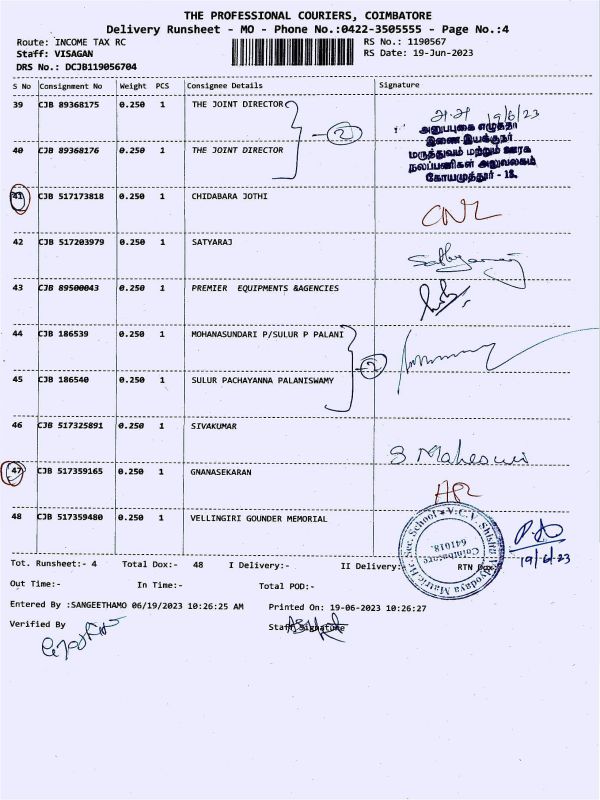 THE PROFESSIONAL COURIERS, COIMBATORE
Delivery Runsheet - MO - Phone No.:0422-3505555 - Page No.:4
Route: INCOME TAX RC
RS No.: 1190567
Staff: VISAGAN
RS Date: 19-Jun-2023
DRS No.: DCJB119056704
S No Consignment No Weight PCS Consignee Details Signature
39 CJB 89368175 0.250 1 THE JOINT DIRECTOR
19/6/23
அனுப்புகை எழுத்தர்
இணை இயக்குநர்
மருத்துவம் மற்றும் ஊரக
நலப்பணிகள் அலுவலகம்
கோயமுத்தூர் - 18.
2
40 CJB 89368176 0.250 1 THE JOINT DIRECTOR
41 CJB 517173818 0.250 1 CHIDABARA JOTHI
42 CJB 517203979 0.250 1 SATYARAJ
43 CJB 89500043 0.250 1 PREMIER EQUIPMENTS &AGENCIES
44 CJB 186539 0.250 1 MOHANASUNDARI P/SULUR P PALANI
2
45 CJB 186540 0.250 1 SULUR PACHAYANNA PALANISWAMY
46 CJB 517325891 0.250 1 SIVAKUMAR
S Maheswi
47 CJB 517359165 0.250 1 GNANASEKARAN
48 CJB 517359480 0.250 1 VELLINGIRI GOUNDER MEMORIAL
V.C.V. Shishu Vidyodaya Matric.Hr.Sec. School
Coimbatore
641018.
19/6/23
Tot. Runsheet:- 4 Total Dox:- 48 I Delivery:- II Delivery:- RTN Dox:-
Out Time:- In Time:- Total POD:-
Entered By :SANGEETHAMO 06/19/2023 10:26:25 AM Printed On: 19-06-2023 10:26:27
Verified By Staff Signature